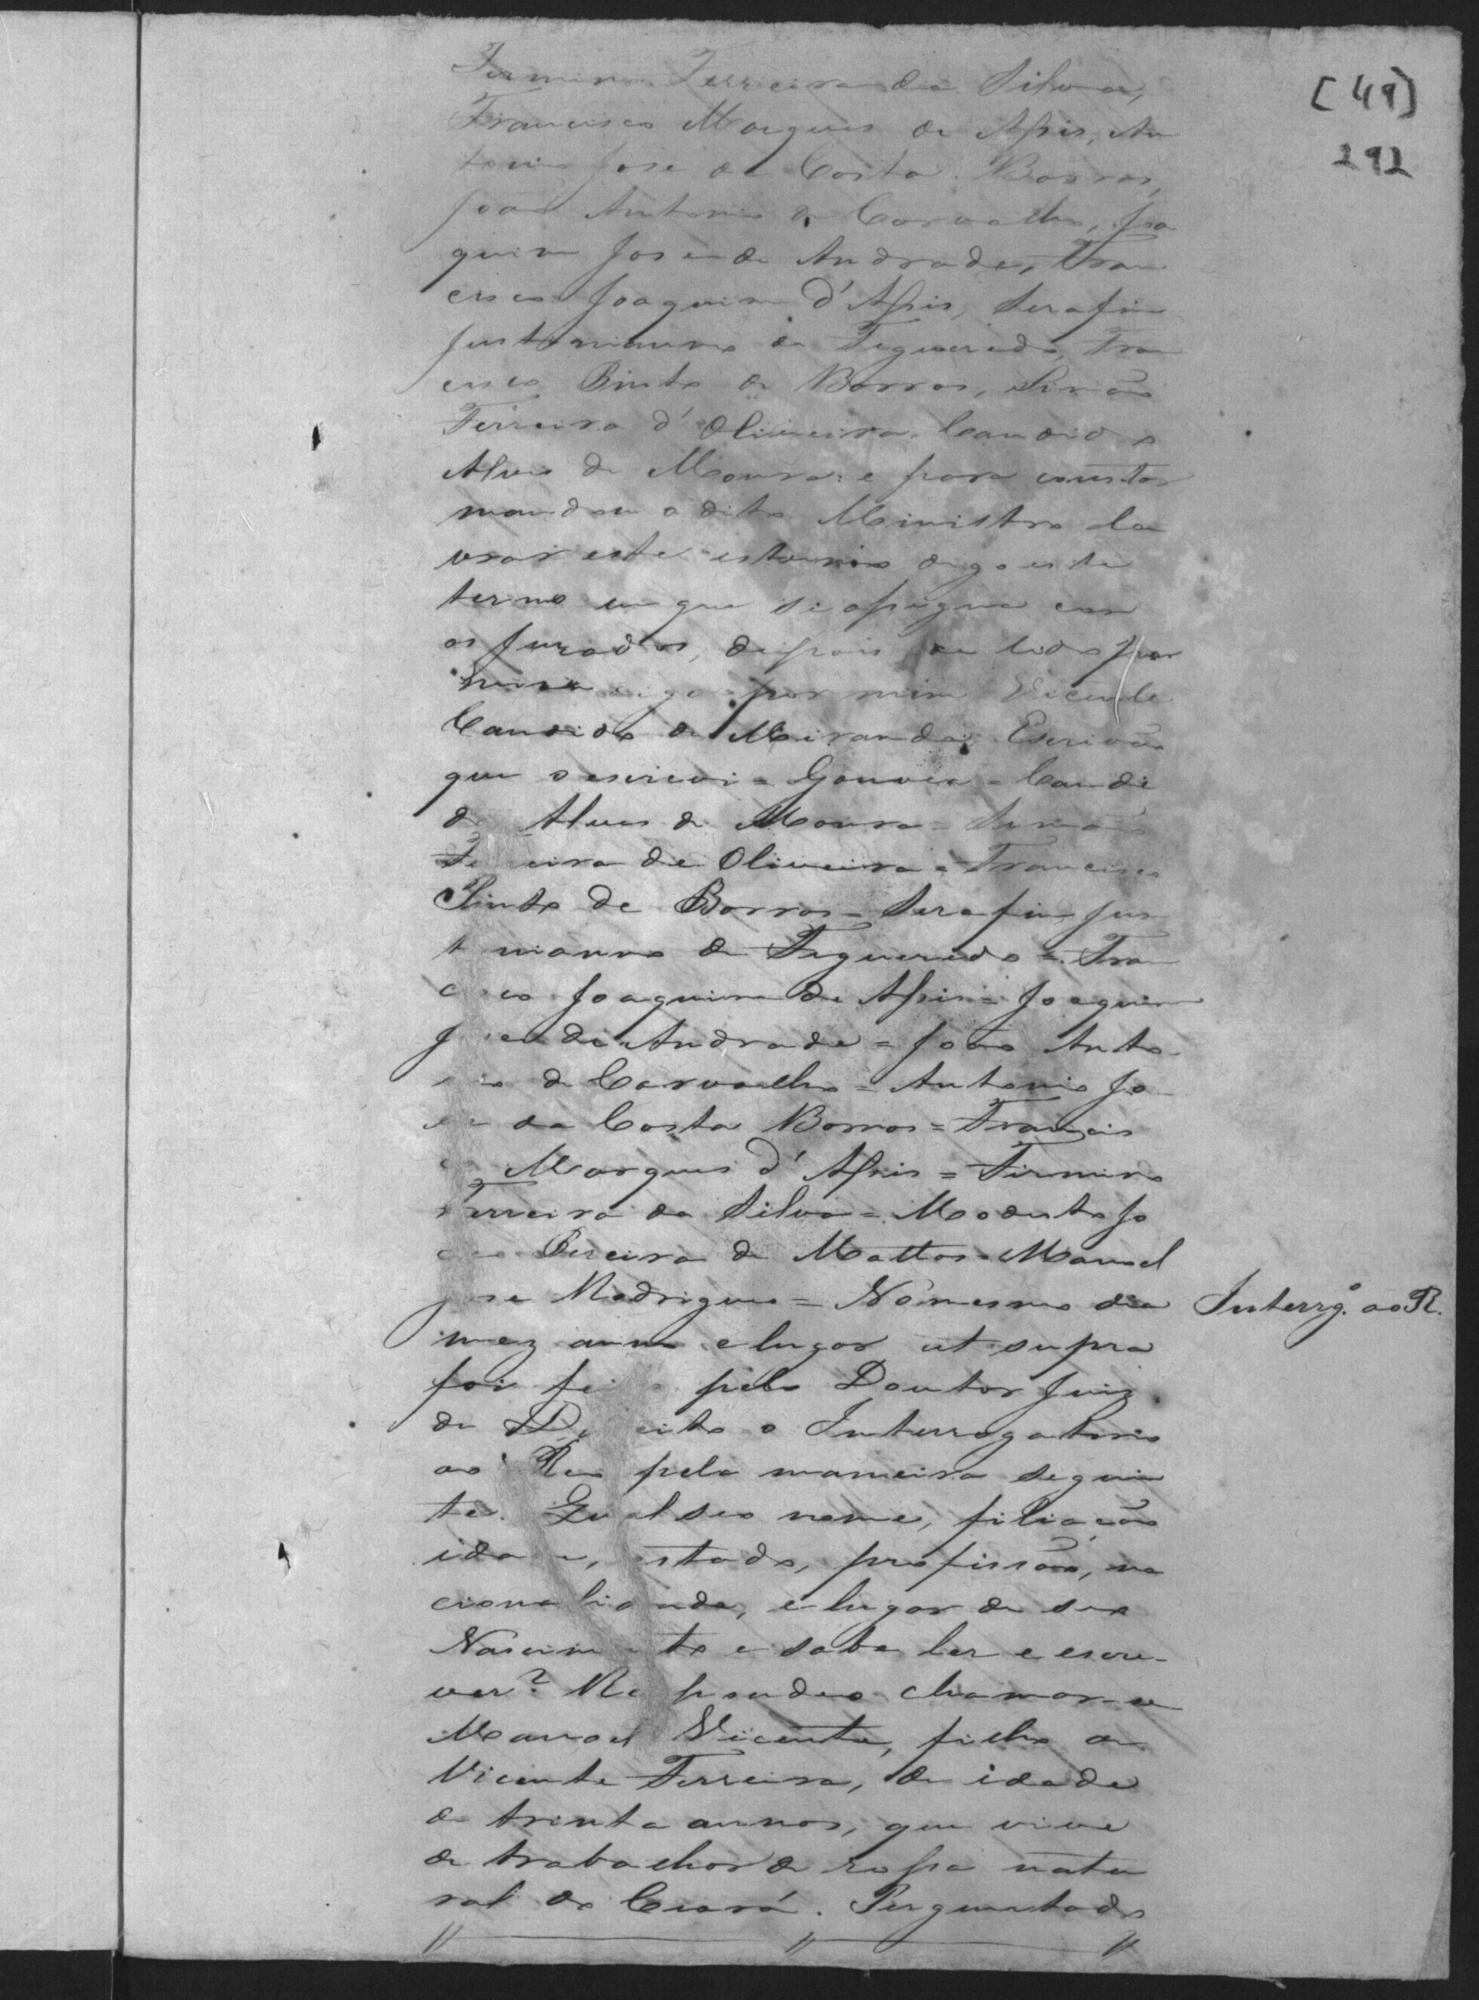 [49]
292
Firmino Ferreira da Silva,
Francisco Marques de Assis, An
tonio José da Costa Barros,
João Antonio de Carvalho, Joa
quim José de Andrade, Fran
cisco Joaquim d'Assis, Serafim
Justinianno de Figueredo, Fran
cisco Pinto de Barros, Simão
Ferreira d'Oliveira, Candido
Alves de Moura: e para constar
mandou o dito Ministro la
vrar este digo este
termo em que se assigna com
os jurados, depois de lido por
digo por mim Vicente
Candido de Miranda, Escrivão
que o escrevi = Gouvea = Candi
do Alves de Moura = Simão
Fe eira de Oliveira = Francisco
Pinto de Barros = Serafim Jus
t nianno de Figueredo = Fran
c sco Joaquim de Assis = Joaquim
J é de Andrade = João Anto
nio de Carvalho = Antonio Jo
sé da Costa Barros = Francis
co Marques d'Assis = Firmino
Ferreira da Silva = Modesto Jo
sé Pereira de Mattos = Manoel
José Rodrigues = No mesmo dia
Interrg.º ao R.
mez anno e lugar ut supra
foi fei pelo Doutor Juiz
de Di eito o Interrogatorio
ao Reo pela maneira seguin
te. Qual seo nome, filiação
ida e, estado, profissão, na
cionalidade, e lugar de seo
Nascim to e sabe ler e escre-
ver? Respondeo chamar-se
Manoel Vicente, filho de
Vicente Ferreira, de idade
de trinta annos, que vive
de trabalhar de rossa natu
ral do Ceará. Perguntado